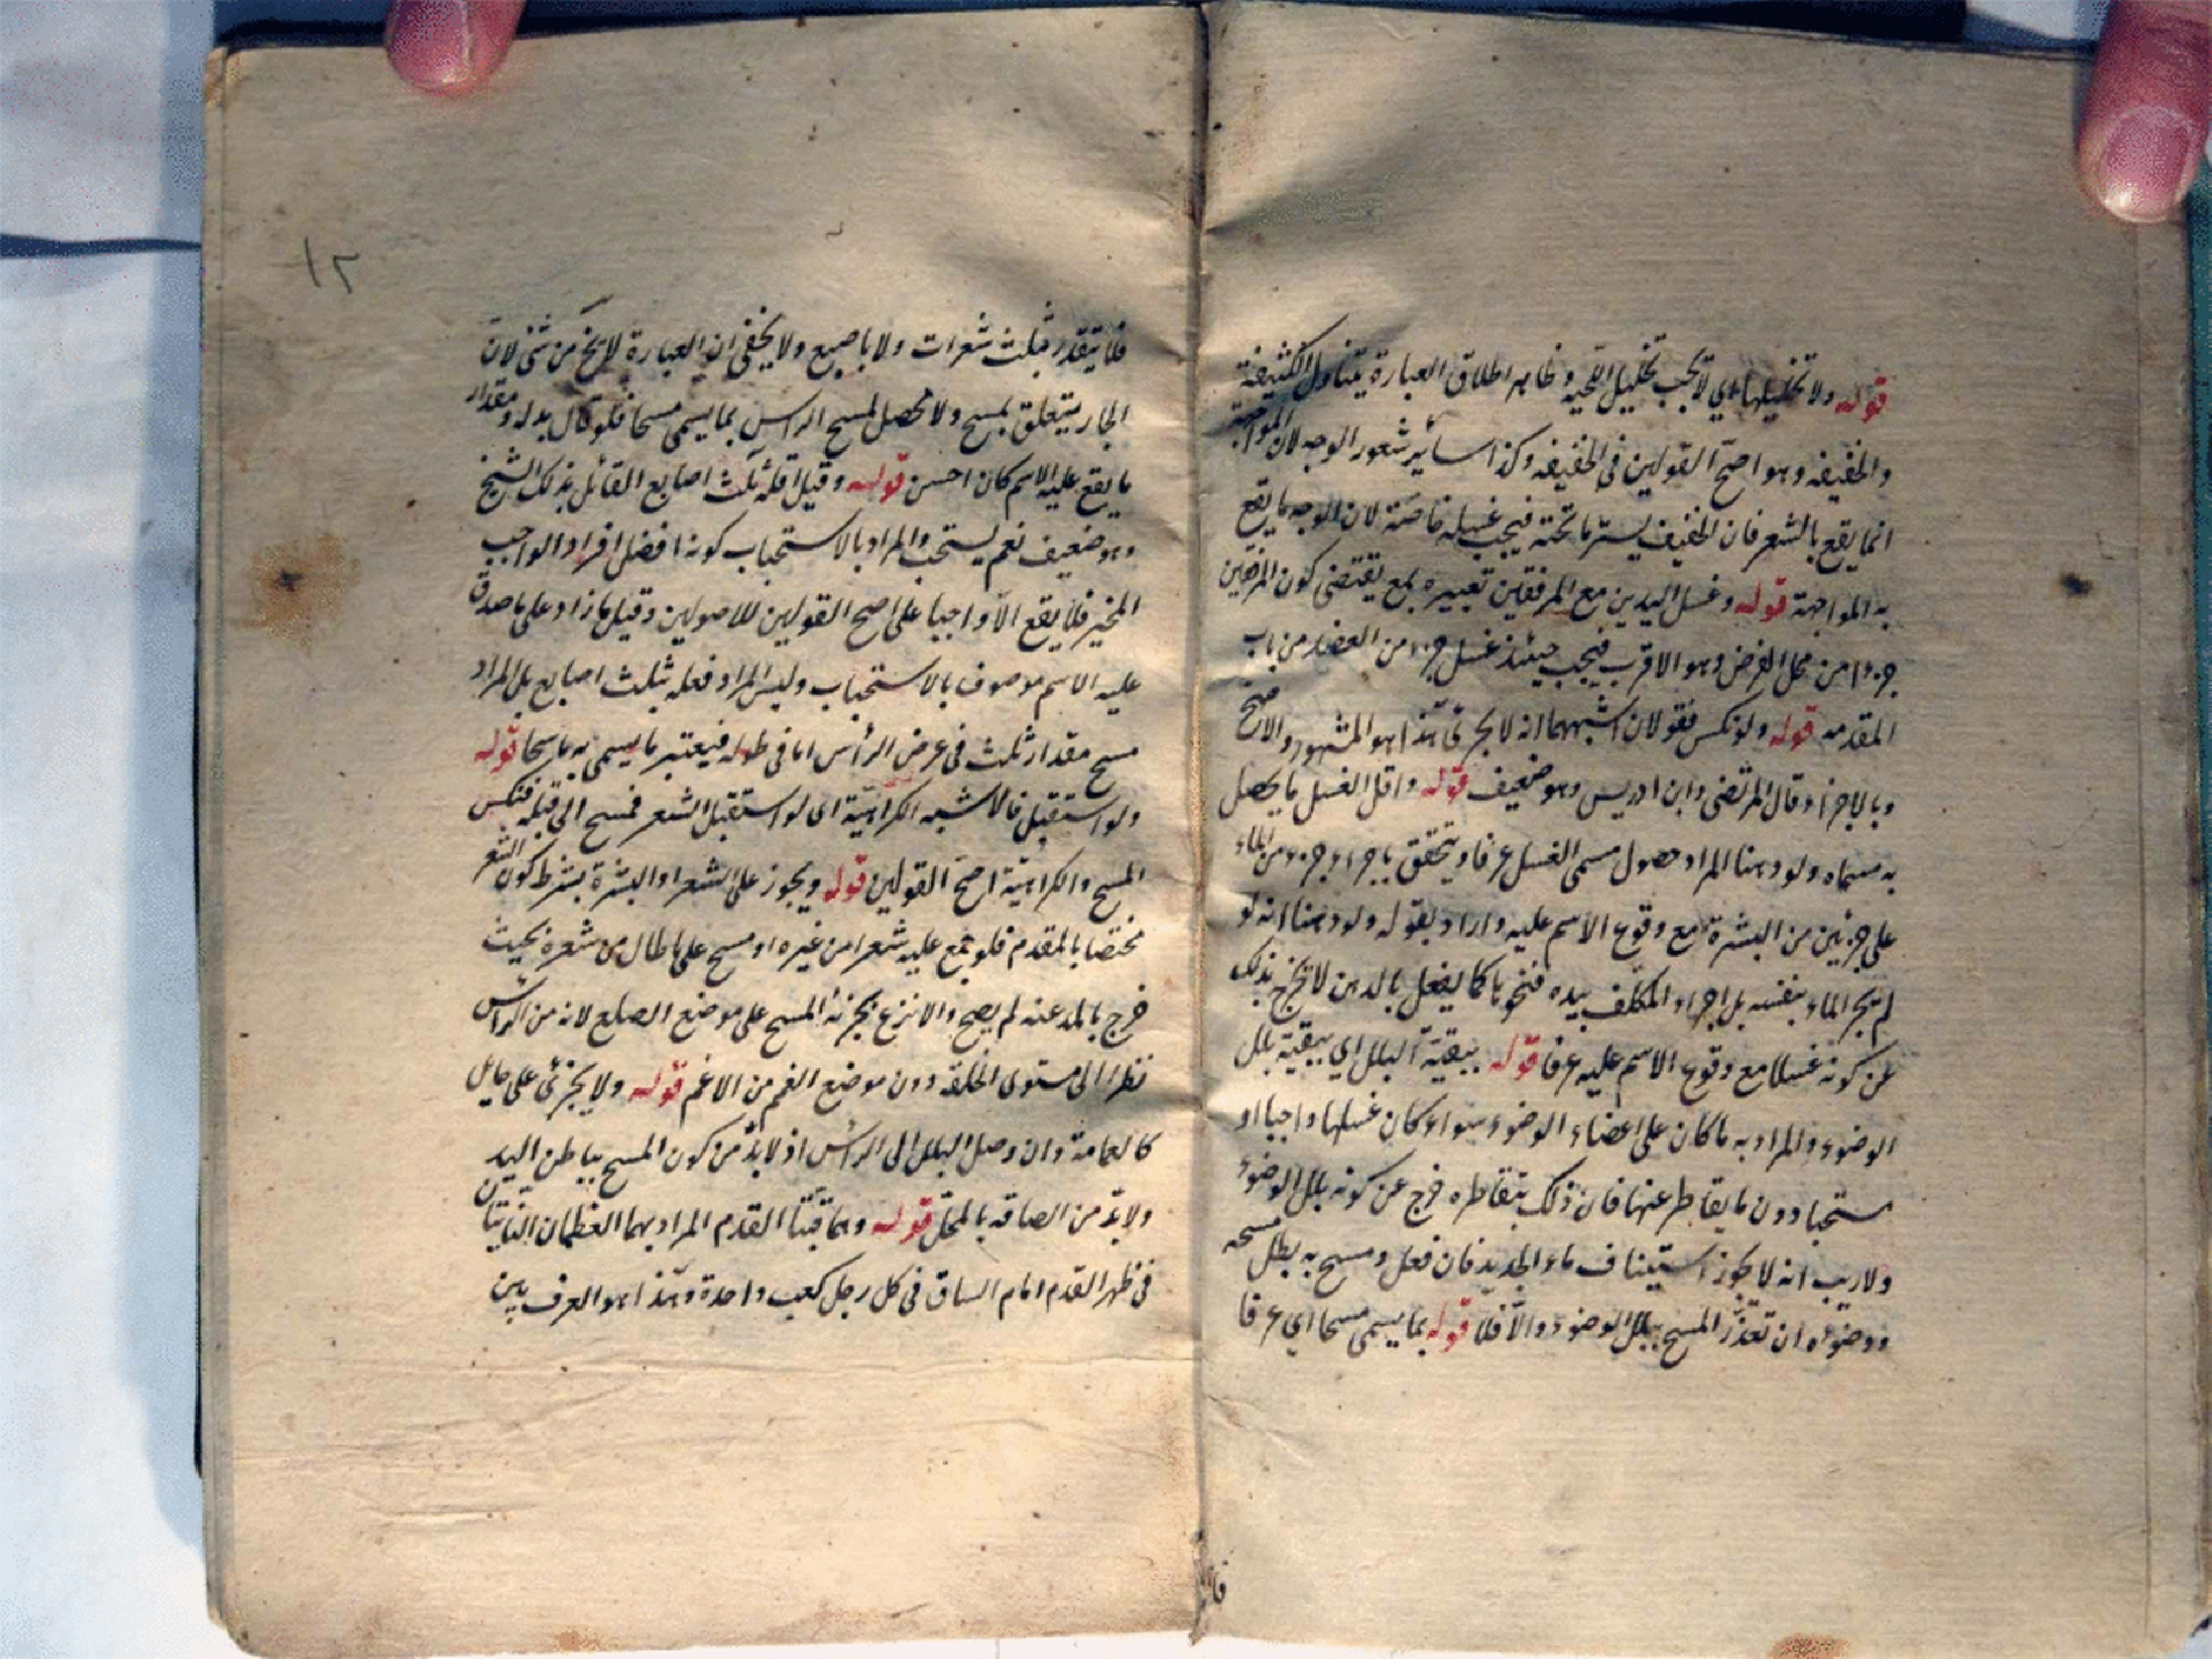 قوله ولا تخليلها اي لا يجب تخليل اللحية وظاهر اطلاق العبارة يتناول الكثيفة
والخفيفه وهو اصح القولين في الخفيفه وكذا سائر شعور الوجه لان المواجهة
انما يقع بالشعر فان الخفيف يستر ما تحته فيجب غسله خاصة لان الوجه ما يقع
به المواجهة قوله وغسل اليدين مع المرفقين تعبيره بمع يقتضى كون المرفقين
جزءا من محل الفرض وهو الاقرب فيجب حينئذ غسل جزء من العضد من باب
المقدمه قوله ولو نكس فقولان اشبههما انه لا يجزئ هذا هو المشهور والاصح
وبالاجزاء قال المرتضى وابن ادريس وهو ضعيف قوله واقل الغسل ما يحصل
به مسماه ولو دهنا المراد حصول مسمى الغسل عرفا ويتحقق باجراء جزء من الماء
على جزئين من البشرة مع وقوع الاسم عليه واراد بقوله ولو دهنا انه لو
لم يجر الماء بنفسه بل اجراه المكلف بيده فنحو ما كما يفعل بالدهن لا تخرج بذلك
عن كونه غسلا مع وقوع الاسم عليه عرفا قوله ببقية البلل اي ببقية بلل
الوضوء والمراد به ما كان على اعضاء الوضوء سواء كان غسلها واجبا او
مستحبا دون ما يقاطر عنها فان ذلك بتقاطره خرج عن كونه بلل الوضوء
ولا ريب انه لا يجوز استيناف ماء الجديد فان فعل ومسح به بطل مسحه
ووضوءه ان تعذر المسح ببلل الوضوء والا فلا قوله بما يسمى مسحا اي عرفا
١٢
فلا يتقدر بثلث شعرات ولا باصبع ولا يخفى ان العبارة لا يخ من شئ لان
الجار يتعلق بمسح ولا محصل لمسح الراس بما يسمى مسحا فلو قال بدله ومقدار
ما يقع عليه الاسم كان احسن قوله وقيل اقله ثلث اصابع القائل بذلك الشيخ
وهو ضعيف نعم يستحب والمراد بالاستحباب كونه افضل افراد الواجب
المخير فلا يقع الا واجبا على اصح القولين للاصولين وقيل ما زاد على ما صدق
عليه الاسم موصوف بالاستحباب وليس المراد فعله بثلث اصابع بل المراد
مسح مقدار ثلث في عرض الرأس اما في طوله فيعتبر ما يسمى به ماسحا قوله
ولو استقبل فالاشبه الكراهية اى لو استقبل الشعر فمسح الى قبله فنكس
المسح والكراهية اصح القولين قوله ويجوز على الشعر او البشرة بشرط كون الشعر
مختصا بالمقدم فلو جمع عليه شعرا من غيره او مسح على ما طال من شعره بحيث
خرج بالمد عنه لم يصح والانزع يجزئه المسح على موضع الصلع لانه من الراس
نظرا الى مستوى الخلقة دون موضع الغم من الاغم قوله ولا يجزئ على حايل
كالعمامة وان وصل البلل الى الراس اذ لا بد من كون المسح بباطن اليد
ولا بد من الصاقه بالمحل قوله وهما قبتا القدم المراد بهما العظمان الناتيان
في ظهر القدم امام الساق في كل رجل كعب واحدة وهذا هو العرف بين